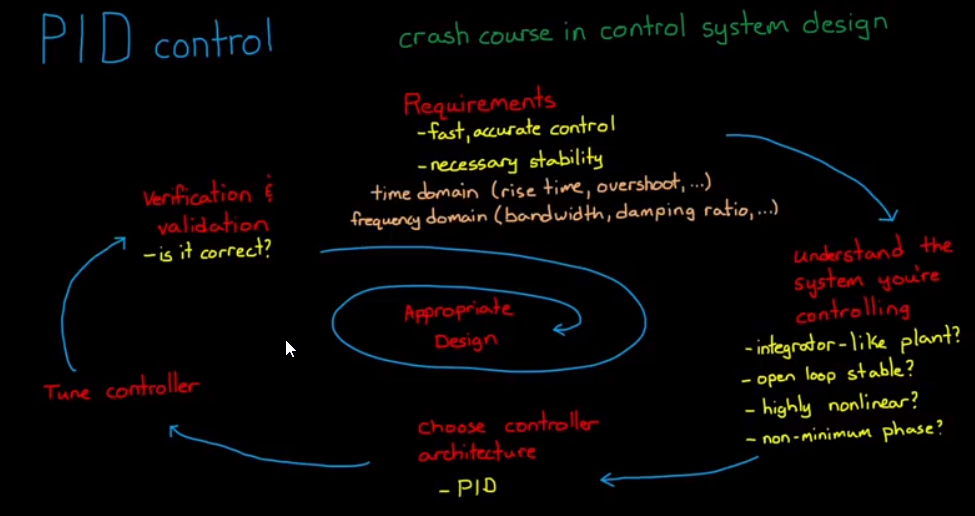 PID control
crash course in control system design
Requirements
-fast, accurate control
-necessary stability
time domain (rise time, overshoot, ...)
frequency domain (bandwidth, damping ratio, ...)
understand the
system you're
controlling
-integrator-like plant?
-open loop stable?
-highly nonlinear?
-non-minimum phase?
choose controller
architecture
-PID
Tune controller
Verification &
validation
-is it correct?
Appropriate
Design